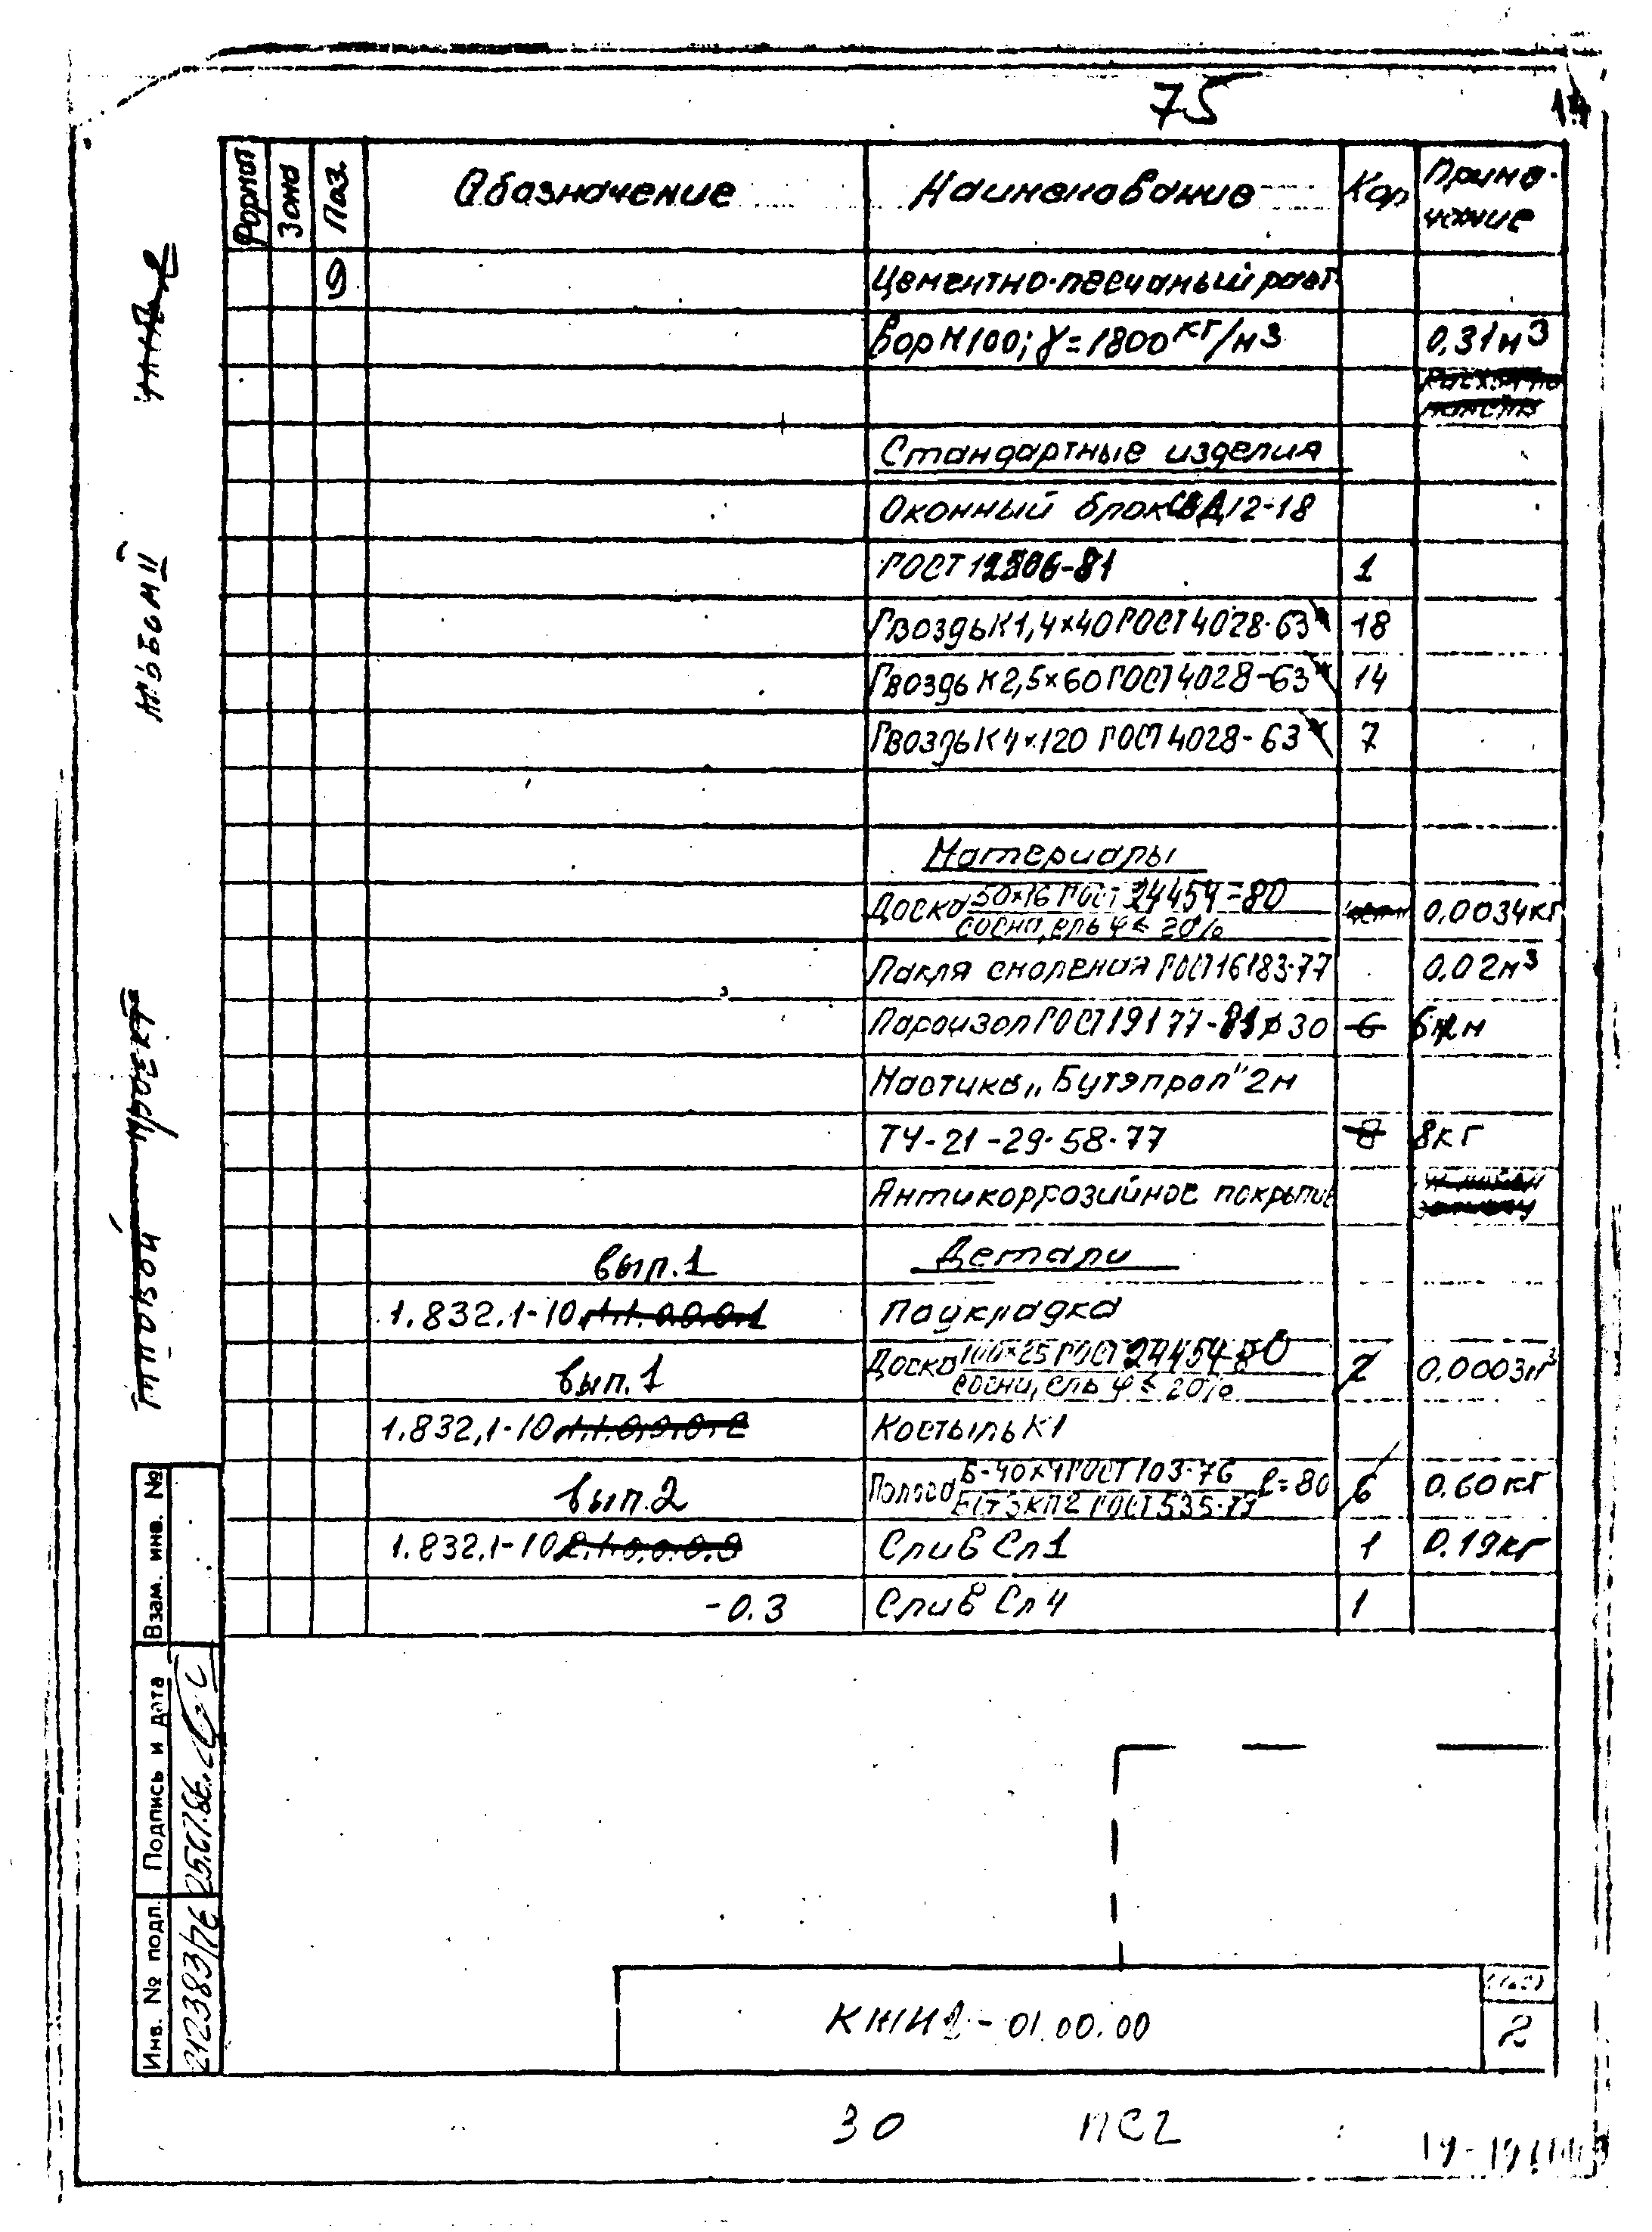 75
Формат Зона Поз. Обозначение Наименование Кол Приме-
чание
9 Цементно-песчаный раст
вор М100; γ=1800кг/м3 0.31м3
Стандартные изделия
Оконный блок 12-18
ГОСТ 12506-81 1
Гвоздь К1,4×40 ГОСТ 4028-63 18
Гвоздь К2,5×60 ГОСТ 4028-63 14
Гвоздь К4×120 ГОСТ 4028-63 7
Материалы
Доска 50×16 ГОСТ 24454-80 0.0034кг
сосна, ель φ ≤ 20%
Пакля смоленая ГОСТ 16183-77 0.02м3
Пароизол ГОСТ 19177-81 φ30 6 м
Мастика „Бутэпрол" 2м
ТУ-21-29-58-77 8 8кг
Антикоррозийное покрытие
вып.1 Детали
1.832.1-10 Подкладка
вып.1 Доска 100×25 ГОСТ 24454-80 2 0.0003м3
сосна, ель φ ≤ 20%
1.832,1-10 Костыль К1
вып.2 Полоса Б-40×4 ГОСТ 103-76 ℓ=80 6 0.60кг
ВСт3КП2 ГОСТ 535-79
1.832.1-10 Слив Сл1 1 0.19кг
-0.3 Слив Сл4 1
Альбом II
Типовой проект
Взам. инв. №
Подпись и дата
25.07.86
Инв. № подл.
212383/76
КЖИ2-01.00.00
Лист
2
30 ПС2